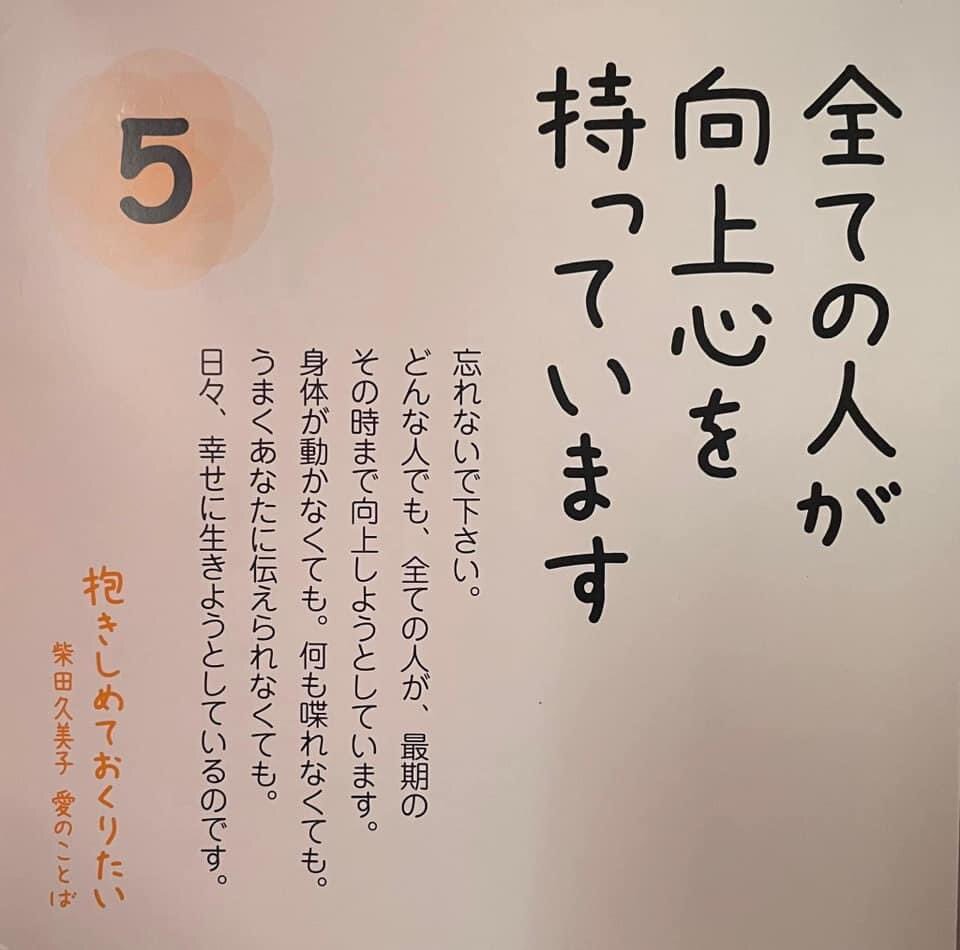 全ての人が
向上心を
持っています
忘れないで下さい。
どんな人でも、全ての人が、最期の
その時まで向上しようとしています。
身体が動かなくても。何も喋れなくても。
うまくあなたに伝えられなくても。
日々、幸せに生きようとしているのです。
5
抱きしめておくりたい
柴田久美子 愛のことば